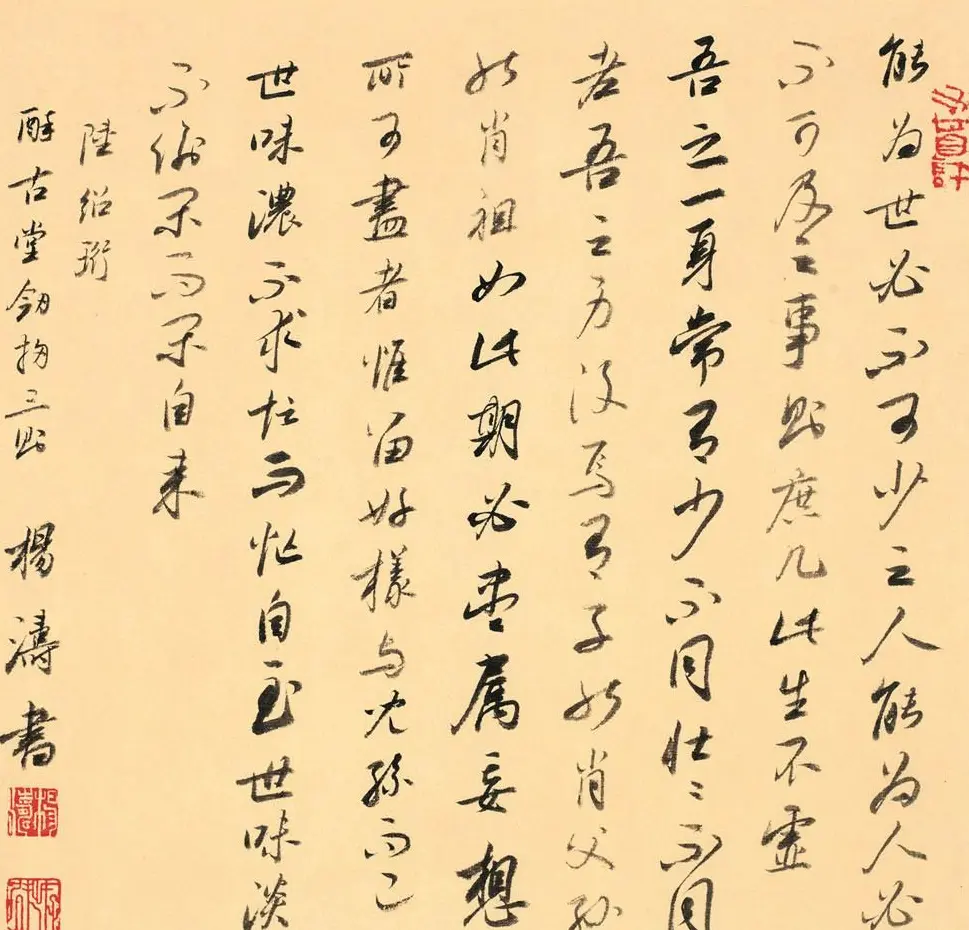 能为世必不可少之人能为人必
不可及之事则庶几此生不虚
吾之一身常有少不同壮〻不同
老吾之身後焉有子能肖父孙
能肖祖如此期必尽属妄想
所可盡者惟留好樣与児孫而已
世味濃不求忙而忙自至世味淡
不偷闲而闲自来
陸绍珩
醉古堂劍扫三则 楊濤書